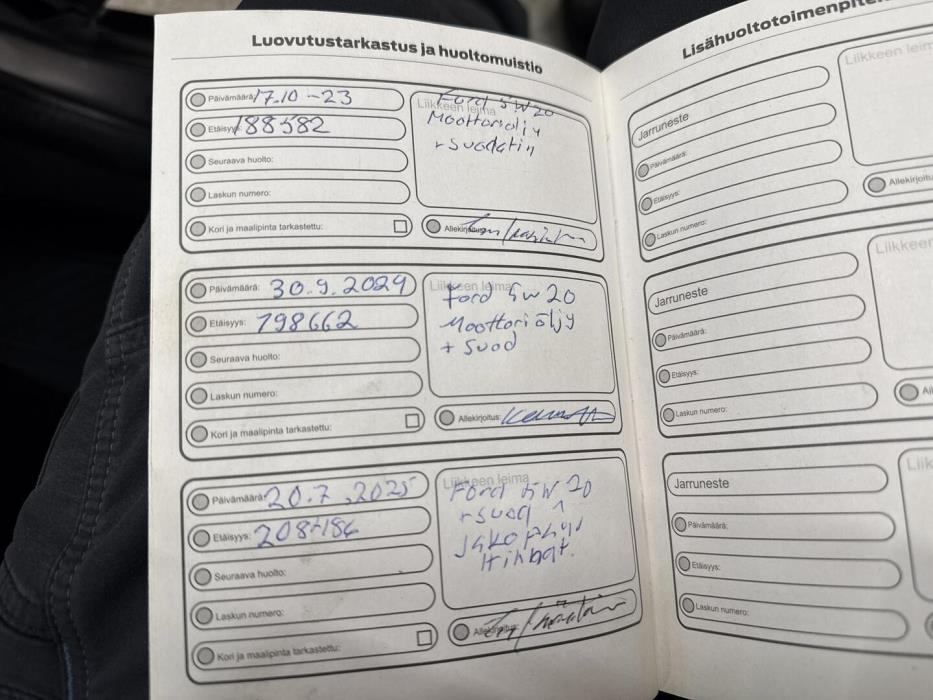 Luovutustarkastus ja huoltomuistio
Päivämäärä: 17.10-23
Etäisyys: 188582
Seuraava huolto:
Laskun numero:
Kori ja maalipinta tarkastettu:
Liikkeen leima
Ford 5W20
Moottoriöljy
+suodatin
Allekirjoitus:
Päivämäärä: 30.9.2024
Etäisyys: 198662
Seuraava huolto:
Laskun numero:
Kori ja maalipinta tarkastettu:
Liikkeen leima
Ford 5W20
Moottoriöljy
+ Suod
Allekirjoitus:
Päivämäärä: 20.7.2025
Etäisyys: 208186
Seuraava huolto:
Laskun numero:
Kori ja maalipinta tarkastettu:
Liikkeen leima
Ford 5W 20
+suod
Jakopään
Hihnat.
Allekirjoitus:
Jarruneste
Päivämäärä:
Etäisyys:
Laskun numero:
Liikkeen leim
Allekirjoitu
Jarruneste
Päivämäärä:
Etäisyys:
Laskun numero:
Liikkeen
Jarruneste
Päivämäärä:
Etäisyys:
Laskun numero: